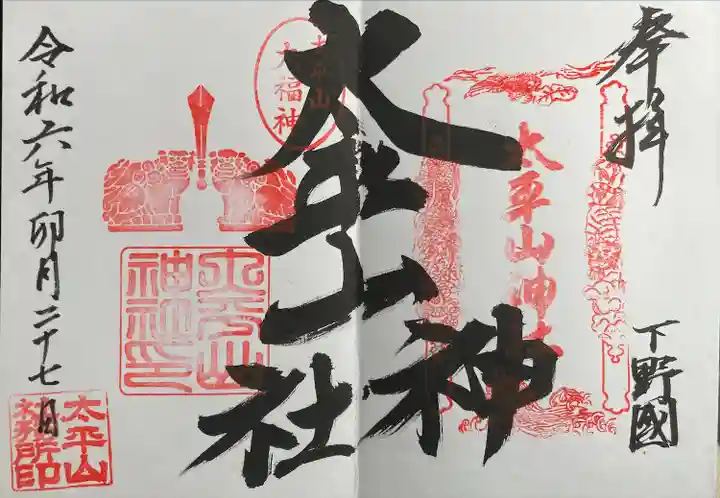 奉拝
下野國
太平山神社
太平山神社
太平山
大福神
太平山
神社印
令和六年卯月二十七日
太平山
社務所印